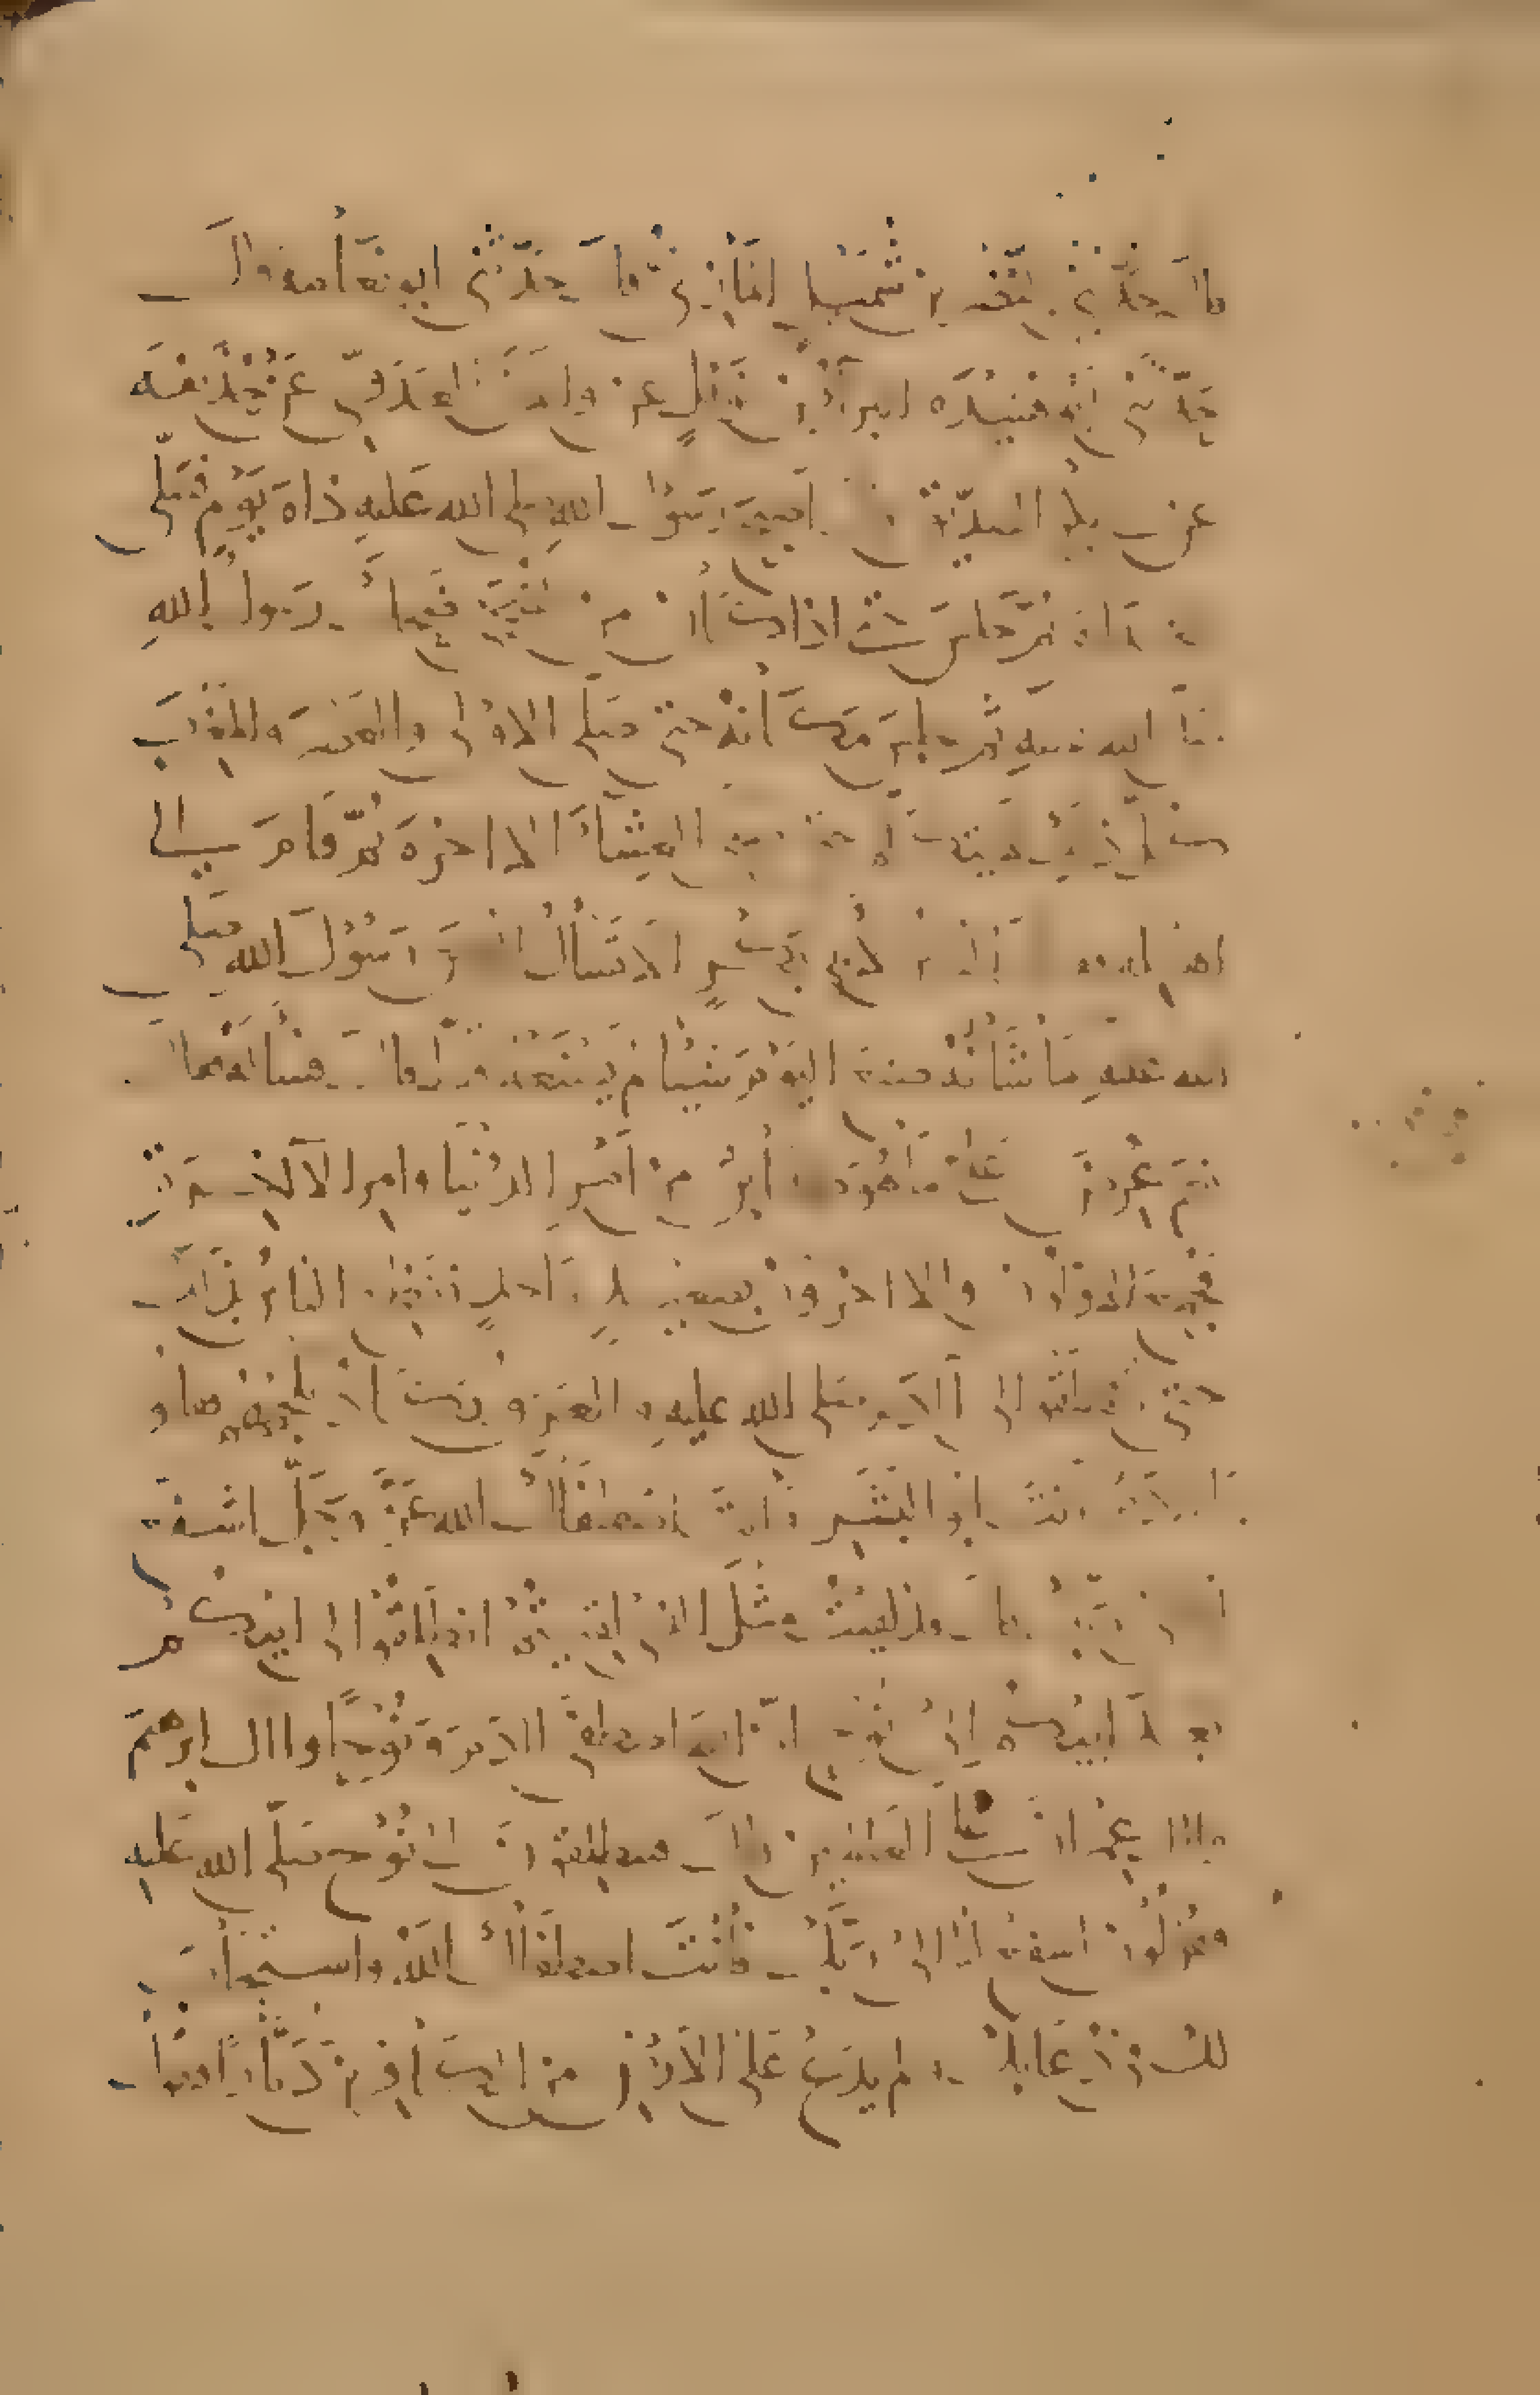 قال حدثني النضر بن شميل المازني قال حدثني ابو نعامة قال
حدثني ابو هنيدة البرا بن نوفل عن والان العدوي عن حذيفة
عن بكر الصديق قال اصبح رسول الله صلى الله عليه ذات يوم فصلى
الغداة ثم جلس حتى اذا كان من الضحى ضحك رسول الله
صلى الله عليه ثم جلس مكانه حتى صلى الاولى والعصر والمغرب
كل ذلك لا يتكلم حتى صلى العشا الاخرة ثم قام الى
اهله فقال الناس لابي بكر الا تسال رسول الله صلى
الله عليه ما شانه صنع اليوم شيئا لم يصنعه قط قال فساله فقال
نعم عرض علي ما هو كائن من امر الدنيا وامر الاخرة
فجمع الاولون والاخرون بصعيد واحد ففظع الناس بذلك
حتى انطلقوا الى ادم صلى الله عليه والعرق يكاد يلجمهم فقالوا
يا ادم انت ابو البشر وانت اصطفاك الله عز وجل اشفع
لنا الى ربك قال قد لقيت مثل الذي لقيتم انطلقوا الى ابيكم
بعد ابيكم الى نوح ان الله اصطفى ادم ونوحا وال ابرهيم
وال عمران على العالمين قال فينطلقون الى نوح صلى الله عليه
فيقولون اشفع لنا الى ربك فانت اصطفاك الله واستجاب
لك في دعائك ولم يدع على الارض من الكافرين ديارا فيقول